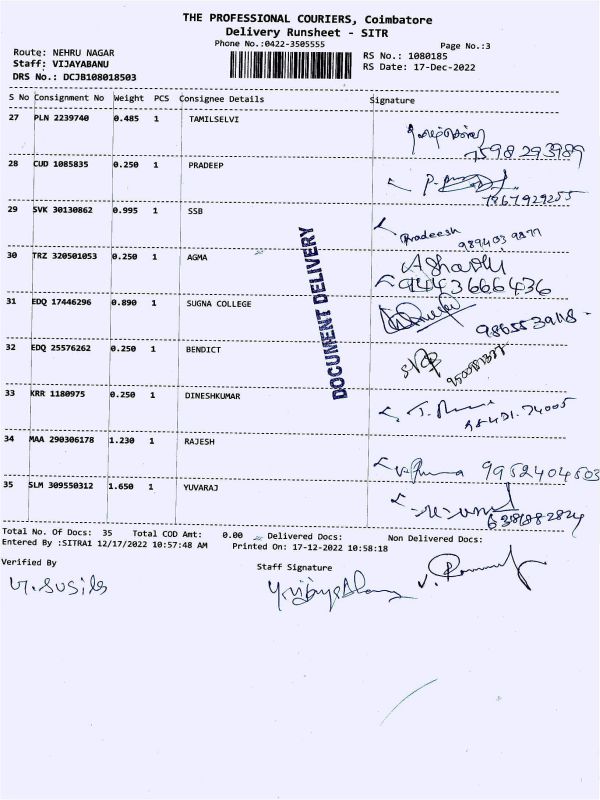 THE PROFESSIONAL COURIERS, Coimbatore
Delivery Runsheet - SITR
Phone No.:0422-3505555
Page No.:3
Route: NEHRU NAGAR
Staff: VIJAYABANU
DRS No.: DCJB108018503
RS No.: 1080185
RS Date: 17-Dec-2022
S No Consignment No Weight PCS Consignee Details Signature
27 PLN 2239740 0.485 1 TAMILSELVI
7598293989
28 CUD 1085835 0.250 1 PRADEEP
7867929255
29 SVK 30130862 0.995 1 SSB
Pradeesh
9894039877
30 TRZ 320501053 0.250 1 AGMA
9443666436
31 EDQ 17446296 0.890 1 SUGNA COLLEGE
32 EDQ 25576262 0.250 1 BENDICT
33 KRR 1180975 0.250 1 DINESHKUMAR
34 MAA 290306178 1.230 1 RAJESH
9952404503
35 SLM 309550312 1.650 1 YUVARAJ
DOCUMENT DELIVERY
Total No. Of Docs: 35 Total COD Amt: 0.00 Delivered Docs: Non Delivered Docs:
Entered By :SITRA1 12/17/2022 10:57:48 AM Printed On: 17-12-2022 10:58:18
Verified By
Staff Signature